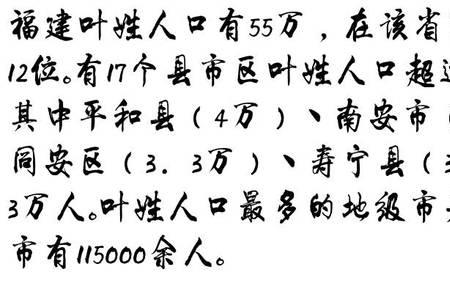 福建叶姓人口有55万，在该省
12位。有17个县市区叶姓人口超
其中平和县（4万）、南安市
同安区（3．3万）、寿宁县（
3万人。叶姓人口最多的地级市
市有115000余人。